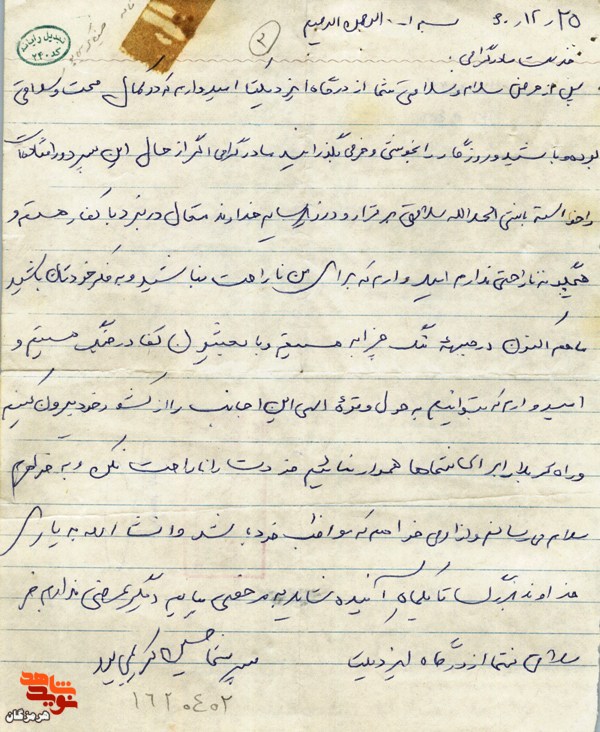 بسمه ا... الرحمن الرحیم ۶۰/۱۲/۲۵
تبدیل رایانه
کد ۲۴۰
۲
خدمت مادر گرامی:
پس از عرض سلام و سلامتی شما از درگاه ایزد یکتا امیدوارم که در کمال صحت و سلامتی
بوده و باشید و روزگار را بخوشی و خرمی بگذرانید مادر گرامی اگر از حال این پسر دور افتاده ات
را خواسته باشی الحمدالله سلامتی برقرار و در زیر سایه خداوند متعال در نبرد با کفار هستم و
هیچگونه ناراحتی ندارم امیدوارم که برای من ناراحت نباشید و به فکر خودتان باشید
ما هم اکنون در جبهه تنگ چزابه هستیم و با بعثیون کفار در جنگ هستیم و
امیدوارم که بتوانیم به حول و قوه الهی این اجانب را از کشور خود بیرون کنیم
و راه کربلا را برای شماها هموار نمائیم خودت را ناراحت نکن و به خواهرم
سلام می رسانم و از او می خواهم که مواظب خود باشد و انشاء الله به یاری
خداوند بزرگ تا یکماه آینده شاید به مرخصی بیایم دیگر عرضی ندارم جز
سلامتی شما از درگاه ایزد یکتا پسر شما حسین
۱۶۲۰۴۰۲
نوید شاهد
هرمزگان